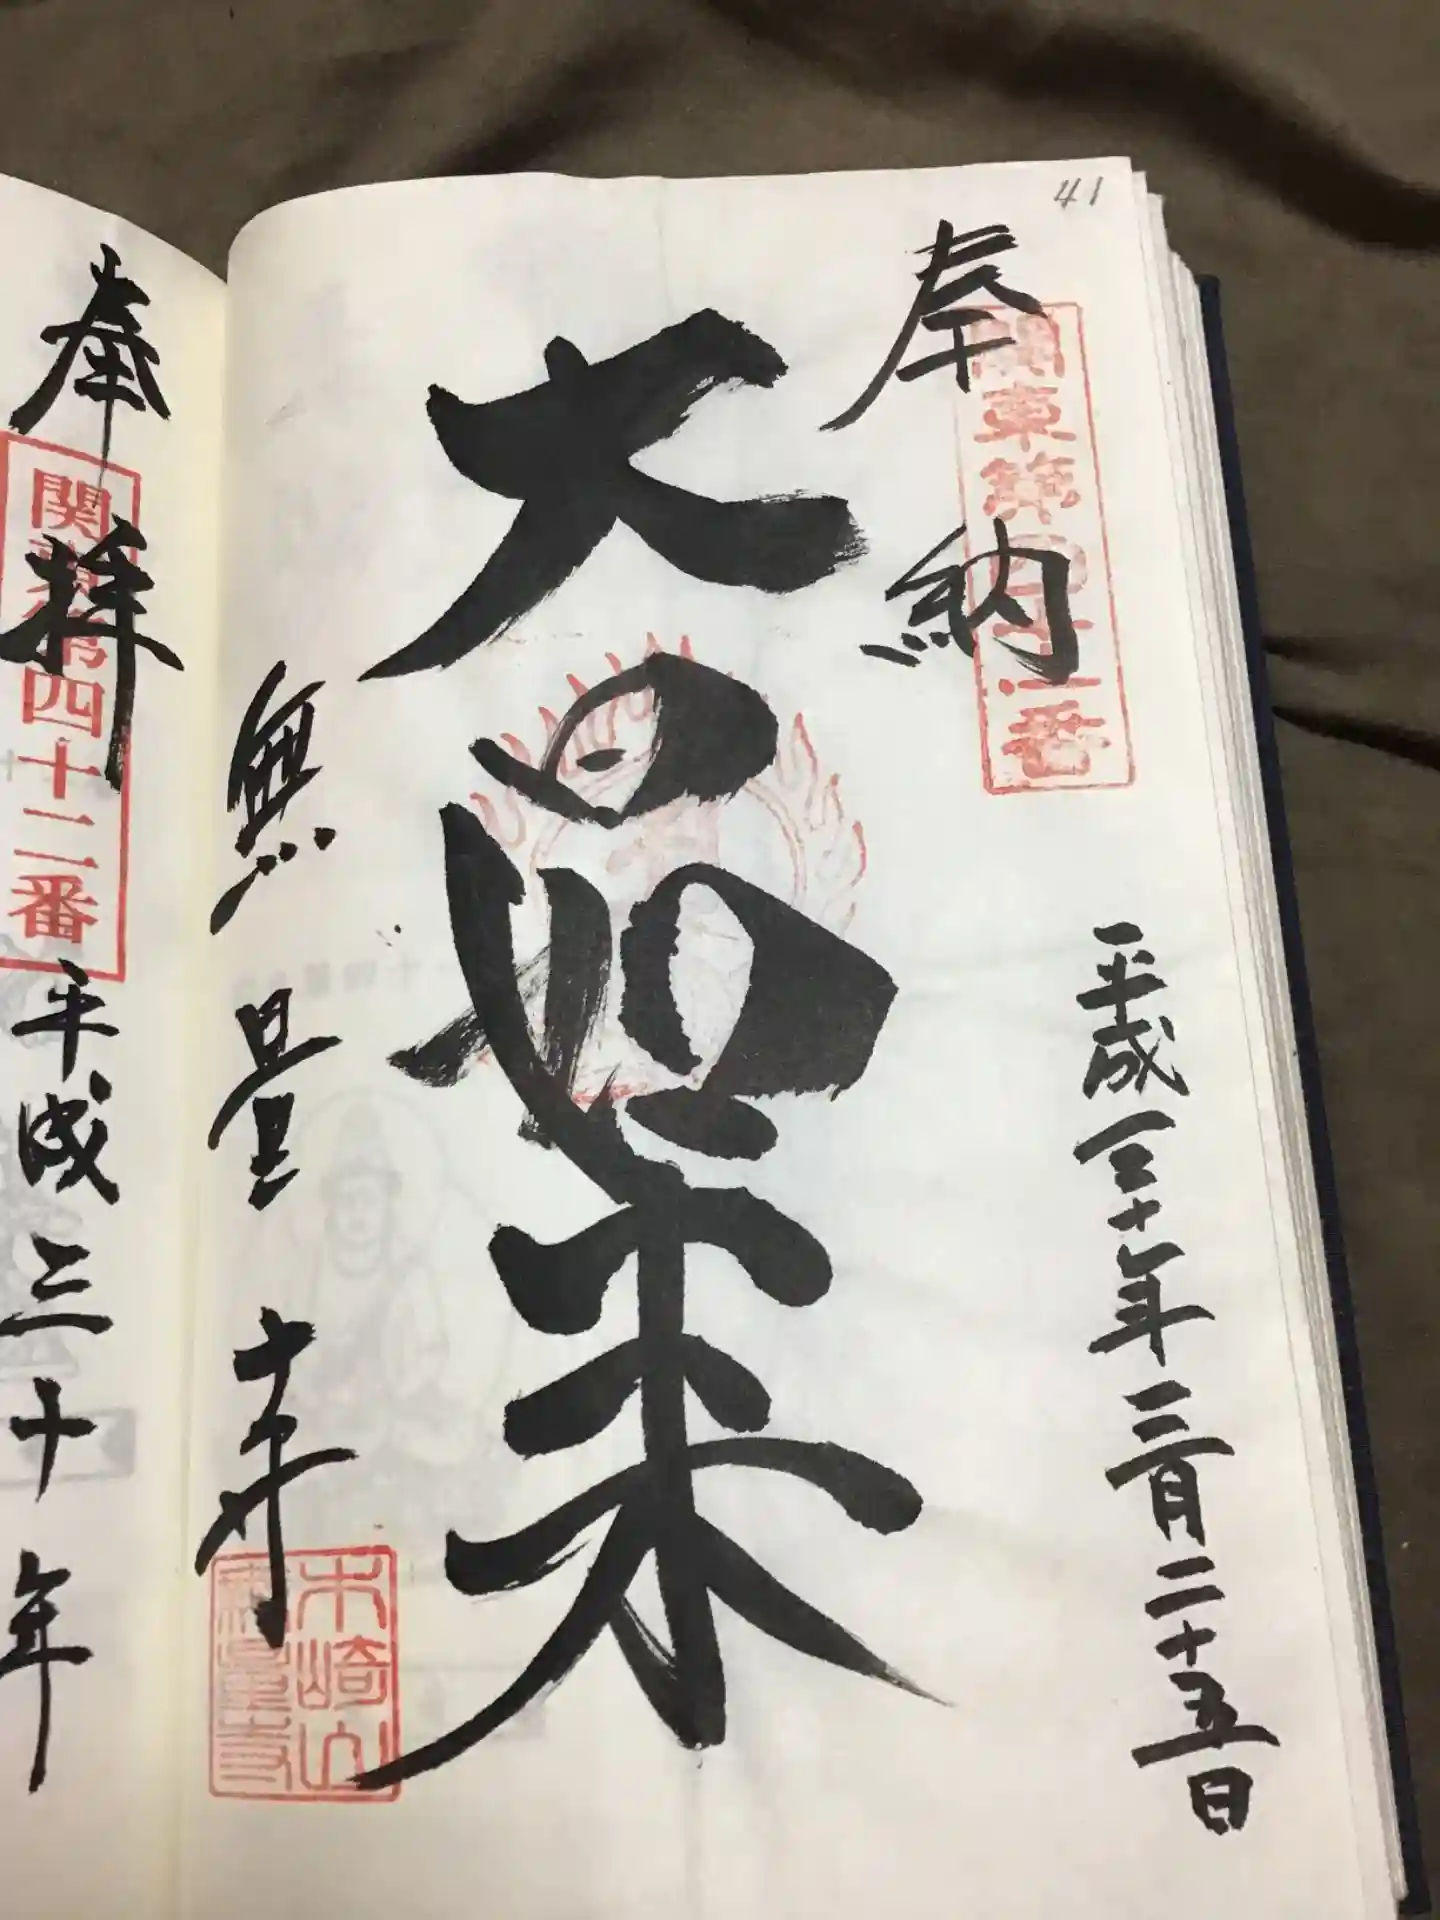 41
奉納
関東第四十一番
平成三十年三月二十五日
大日如来
無量寿寺
無量寺
奉拝
関東第四十二番
平成三十年